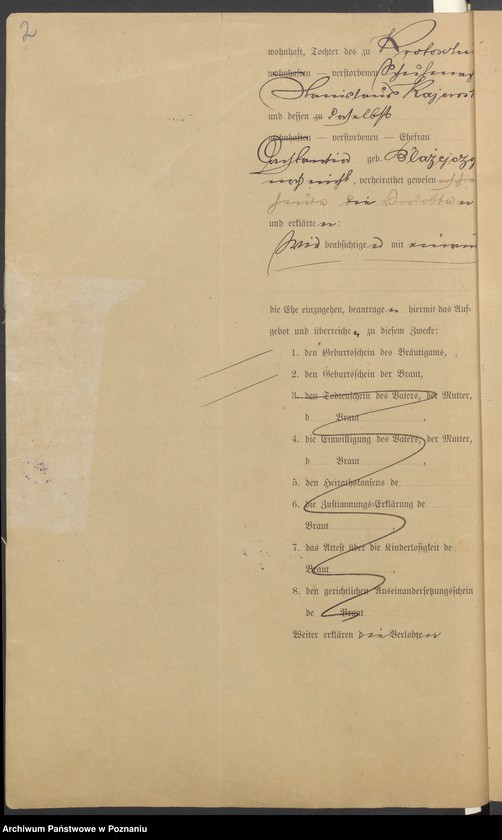 2
wohnhaft, Tochter des zu Krotoschin
wohnhaften — verstorbenen
Stanislaus
und dessen zu daselbst
wohnhaften — verstorbenen — Ehefrau
geb.
noch nicht, verheirathet gewesen
heute die Verlobten
und erklärten:
Wir beabsichtigen mit einander
die Ehe einzugehen, beantragen hiermit das Auf-
gebot und überreichen zu diesem Zwecke:
1. den Geburtsschein des Bräutigams,
2. den Geburtsschein der Braut,
3. den Todtenschein des Vaters, der Mutter,
d Braut ,
4. die Einwilligung des Vaters, der Mutter,
d Braut ,
5. den Heirathskonsens de
6. die Zustimmungs-Erklärung de
Braut ,
7. das Attest über die Kinderlosigkeit de
Braut ,
8. den gerichtlichen Auseinandersetzungsschein
de Braut
Weiter erklären die Verlobten
Archiwum Państwowe w Poznaniu